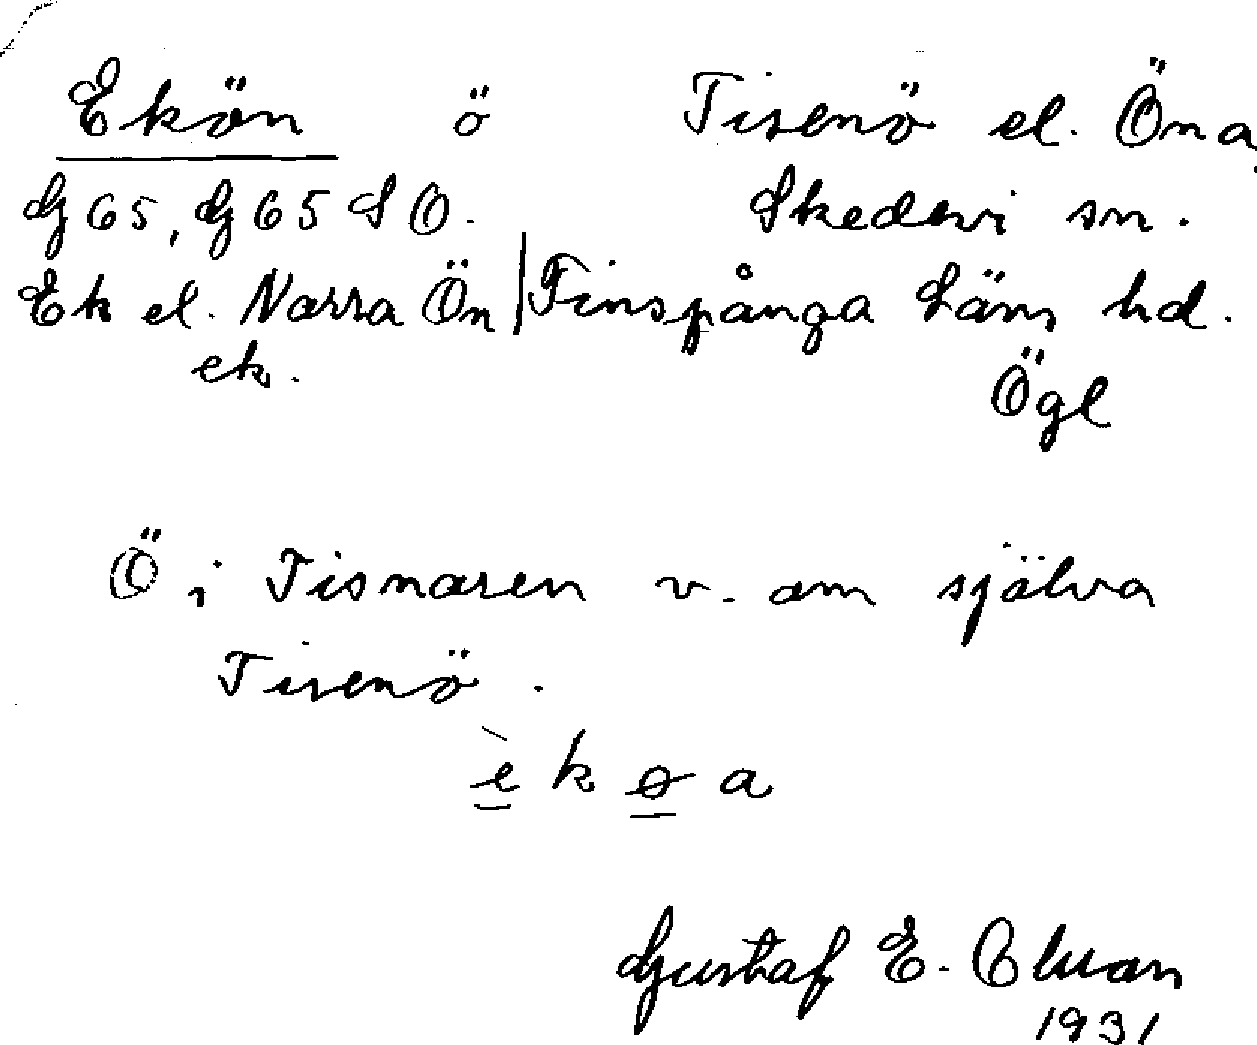 Ekön ö Tisenö el. Öna
G 65, G 65 S O. Skedevi sn.
Ek el. Norra Ön | Finspånga Läns hd.
ek. Ögl
Ö i Tisnaren v. om själva
Tisenö.
è k ø a
Gustaf E.
1931